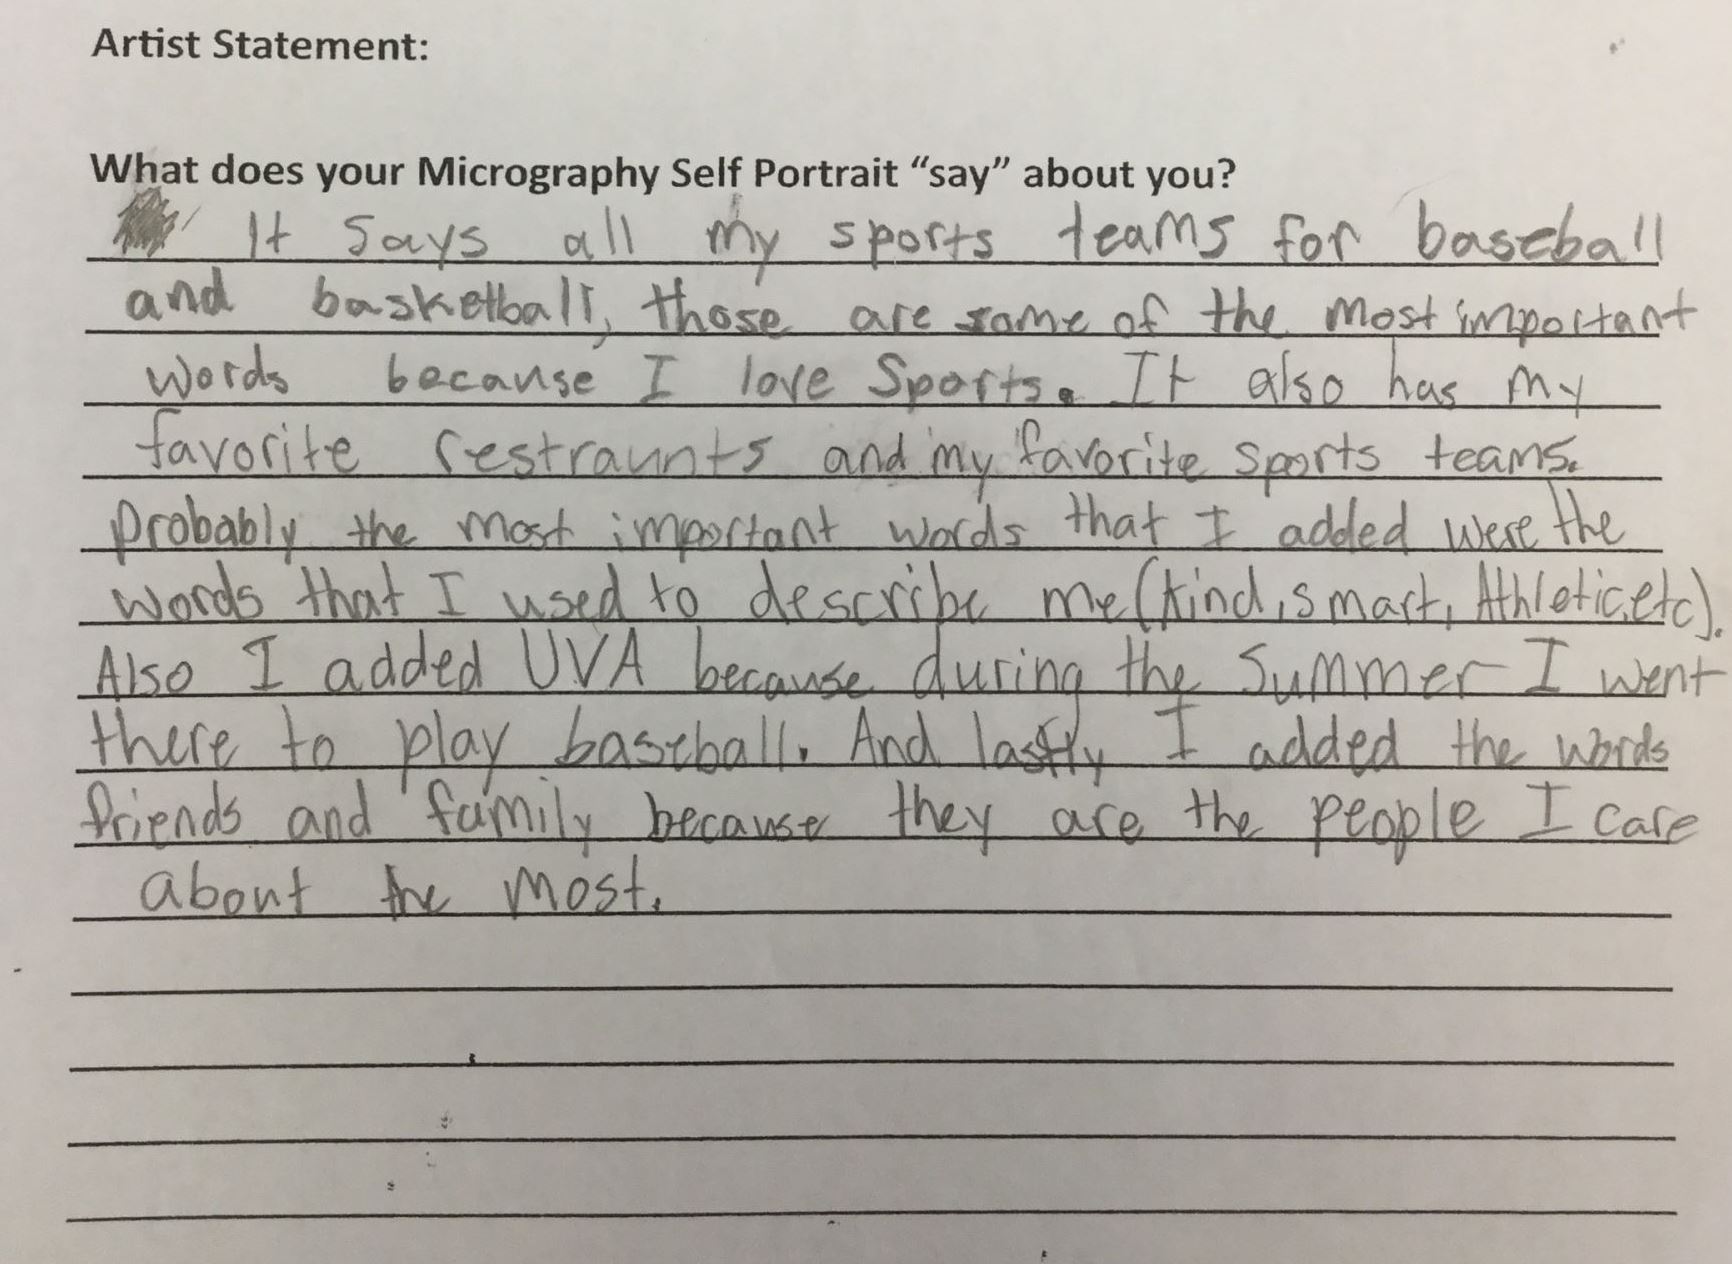 Artist Statement:
What does your Micrography Self Portrait “say” about you?
It says all my sports teams for baseball
and basketball, those are some of the most important
words because I love Sports. It also has my
favorite restraunts and my favorite sports teams.
Probably the most important words that I added were the
words that I used to describe me (kind, smart, Athletic, etc).
Also I added UVA because during the Summer I went
there to play baseball. And lastly I added the words
friends and family because they are the people I care
about the most.